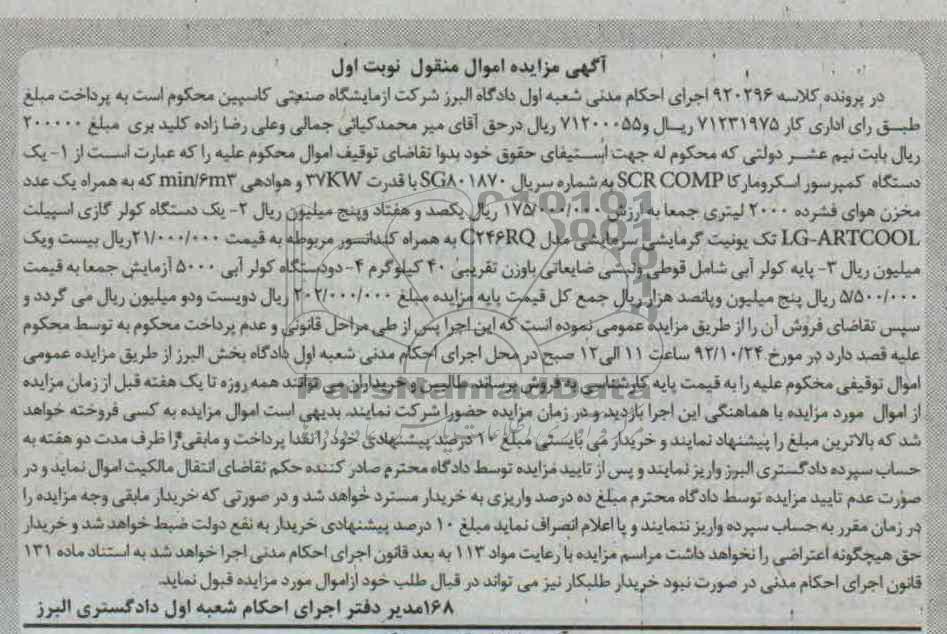 آگهی مزایده اموال منقول نوبت اول
در پرونده کلاسه ۹۲۰۲۹۶ اجرای احکام مدنی شعبه اول دادگاه البرز شرکت ازمایشگاه صنعتی کاسپین محکوم است به پرداخت مبلغ
طبق رای اداری کار ۷۱۲۳۱۹۷۵ ریال و۷۱۲۰۰۰۵۵ ریال درحق آقای میر محمدکیائی جمالی وعلی رضا زاده کلید بری مبلغ ۲۰۰۰۰۰
ریال بابت نیم عشر دولتی که محکوم له جهت استیفای حقوق خود بدوا تقاضای توقیف اموال محکوم علیه را که عبارت است از ۱- یک
دستگاه کمپرسور اسکرومارکا SCR COMP به شماره سریال SG۸۰۱۸۷۰ با قدرت ۳۷KW و هوادهی min/۶m۳ که به همراه یک عدد
مخزن هوای فشرده ۲۰۰۰ لیتری جمعا به ارزش ۱۷۵/۰۰۰/۰۰۰ ریال یکصد و هفتاد وپنج میلیون ریال ۲- یک دستگاه کولر گازی اسپیلت
LG-ARTCOOL تک یونیت گرمایشی سرمایشی مدل C۲۴۶RQ به همراه کندانسور مربوطه به قیمت ۲۱/۰۰۰/۰۰۰ریال بیست ویک
میلیون ریال ۳- پایه کولر آبی شامل قوطی ونبشی ضایعاتی باوزن تقریبی ۴۰ کیلوگرم ۴- دودستگاه کولر آبی ۵۰۰۰ آزمایش جمعا به قیمت
۵/۵۰۰/۰۰۰ ریال پنج میلیون وپانصد هزار ریال جمع کل قیمت پایه مزایده مبلغ ۲۰۲/۰۰۰/۰۰۰ ریال دویست ودو میلیون ریال می گردد و
سپس تقاضای فروش آن را از طریق مزایده عمومی نموده است که این اجرا پس از طی مراحل قانونی و عدم پرداخت محکوم به توسط محکوم
علیه قصد دارد در مورخ ۹۲/۱۰/۲۴ ساعت ۱۱ الی۱۲ صبح در محل اجرای احکام مدنی شعبه اول دادگاه بخش البرز از طریق مزایده عمومی
اموال توقیفی محکوم علیه را به قیمت پایه کارشناسی به فروش برساند. طالبین و خریداران می توانند همه روزه تا یک هفته قبل از زمان مزایده
از اموال مورد مزایده با هماهنگی این اجرا بازدید و در زمان مزایده حضورا شرکت نمایند. بدیهی است اموال مزایده به کسی فروخته خواهد
شد که بالاترین مبلغ را پیشنهاد نمایند و خریدار می بایستی مبلغ ۱۰ درصد پیشنهادی خود را نقدا پرداخت و مابقی را ظرف مدت دو هفته به
حساب سپرده دادگستری البرز واریز نمایند و پس از تایید مزایده توسط دادگاه محترم صادر کننده حکم تقاضای انتقال مالکیت اموال نماید و در
صورت عدم تایید مزایده توسط دادگاه محترم مبلغ ده درصد واریزی به خریدار مسترد خواهد شد و در صورتی که خریدار مابقی وجه مزایده را
در زمان مقرر به حساب سپرده واریز ننمایند و یا اعلام انصراف نماید مبلغ ۱۰ درصد پیشنهادی خریدار به نفع دولت ضبط خواهد شد و خریدار
حق هیچگونه اعتراضی را نخواهد داشت مراسم مزایده با رعایت مواد ۱۱۳ به بعد قانون اجرای احکام مدنی اجرا خواهد شد به استناد ماده ۱۳۱
قانون اجرای احکام مدنی در صورت نبود خریدار طلبکار نیز می تواند در قبال طلب خود ازاموال مورد مزایده قبول نماید.
۱۶۸مدیر دفتر اجرای احکام شعبه اول دادگستری البرز
ParsNamadData